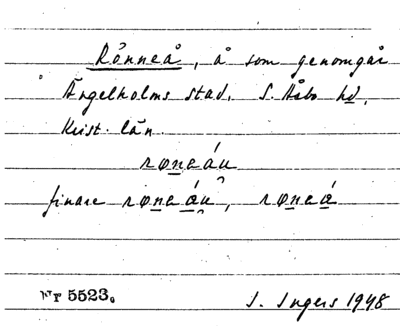 Rönneå, å som genomgår
Ängelholms stad. S. Åsbo hd,
Krist. län.
røneáu
finare røneáu, røneá
Nr 5523.
I. Ingers 1948